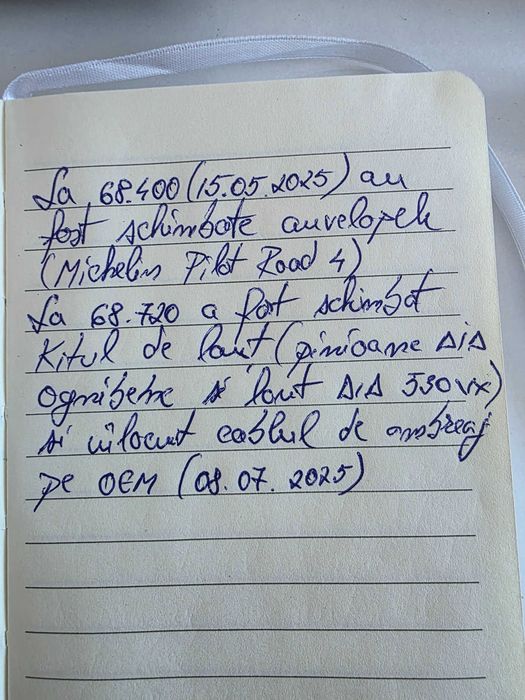 La 68.400 (15.05.2025) au
fost schimbate anvelopele
(Michelin Pilot Road 4)
La 68.720 a fost schimbat
Kitul de lanț (pinioane DID
Ognibene și lanț DID 530VX)
și înlocuit cablul de ambreaj
pe OEM (08.07.2025)